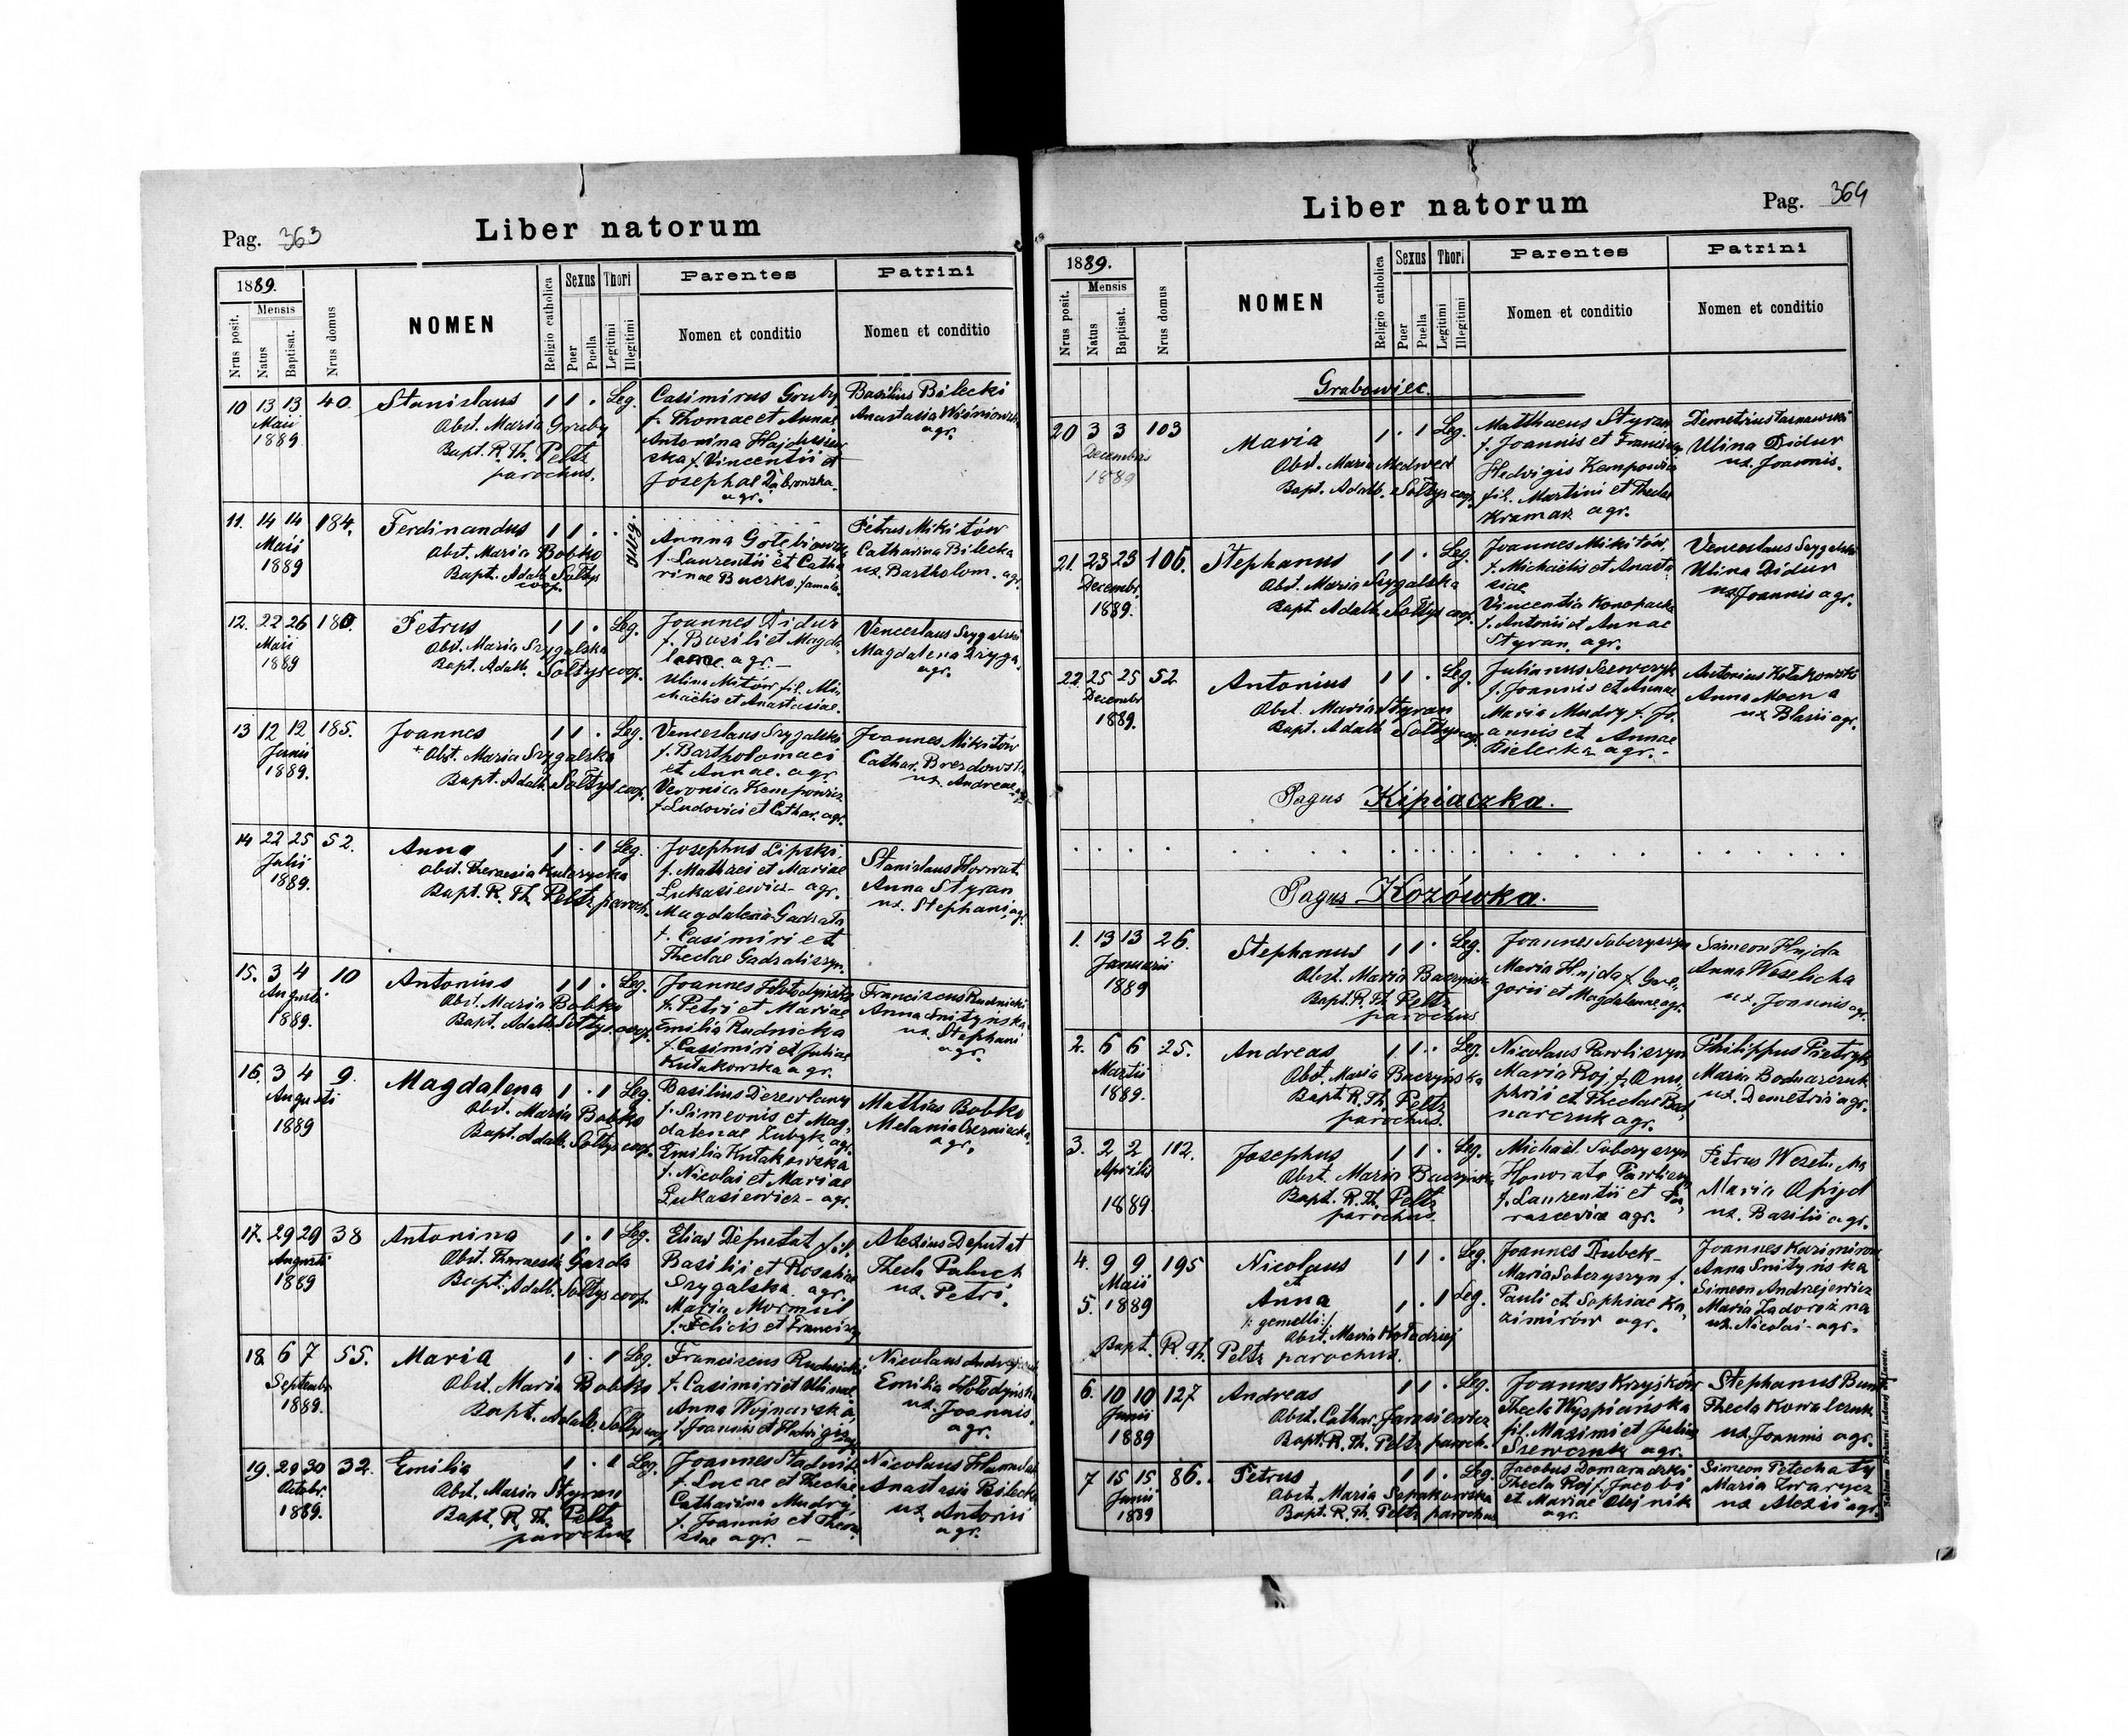 Pag. 363
Liber natorum
1889.
Nrus posit.
Mensis
Natus
Baptisat.
Nrus domus
NOMEN
Religio catholica
Sexus
Puer
Puella
Thori
Legitimi
Illegitimi
Parentes
Nomen et conditio
Patrini
Nomen et conditio
10 13 13 40. Stanislaus 1 1 . Leg.
Maii
1889
Obst. Maria Gruby
Bapt. R. Th. Peltz
parochus.
Casimirus Gruby
f. Thomae et Annae
Antonina
f. Vincentii et
Josephae Dąbrowska
agr.
Basilius Bilecki
Anastasia
agr.
11. 14 14 184. Ferdinandus 1 1 . . illeg.
Maii
1889
Obst. Maria Bobko
Bapt. Adalb. Sołtys
coop.
Anna
f. Laurentii et Catha
rinae Buczko famula.
Petrus Mikitów
Catharina Bilecka
ux. Bartholom. agr.
12. 22 26 180. Petrus 1 1 . Leg.
Maii
1889
Obst. Maria Szygalska
Bapt. Adalb. Sołtys coop.
Joannes Didur
f. Basili et Magda
lenae agr. –
Ulina Mitów fil. Mi
chaëlis et Anastasiae.
Venceslaus Szygalski
Magdalena
agr.
13 12 12 185. Joannes 1 1 . Leg.
Junii
1889.
* Obst. Maria Szygalska
Bapt. Adalb. Sołtys coop.
Venceslaus Szygalski
f. Bartholomaei
et Annae. agr.
Veronica Kempowicz
f. Ludovici et Cathar. agr.
Joannes Mikitów
Cathar.
ux. Andreae agr.
14 22 25 52. Anna 1 . 1 Leg.
Julii
1889.
Obst. Theresia
Bapt. R. Th. Peltz paroch.
Josephus Lipski,
f. Mathaei et Mariae
Lukasiewicz – agr.
Magdalena
f. Casimiri et
Theclae
Stanislaus Horwat
Anna Styran
ux. Stephani agr.
15. 3 4 10 Antonius 1 1 . Leg.
Augusti
1889.
Obst. Maria Bobko
Bapt. Adalb. Sołtys coop.
Joannes Hołodyński
f. Petri et Mariae
Emilia Rudnicka
f. Casimiri et Juliae
Kułakowska agr.
Franciscus Rudnicki
Anna Snityńska
ux. Stephani
agr.
16. 3 4 9. Magdalena 1 . 1 Leg.
Augusti
1889
Obst. Maria Bobko
Bapt. Adalb. Sołtys coop.
Basilius Derewlany
f. Simeonis et Mag,
dalenae Zubyk agr.
Emilia Kułakowska
f. Nicolai et Mariae
Lukasiewicz – agr.
Mathias Bobko
Melania
agr.
17. 29 29 38 Antonina 1 . 1 Leg.
Augusti
1889
Obst. Garda
Bapt. Adalb. Sołtys coop.
Elias Deputat fil.
Basilii et Rosaliae
Szygalska. agr.
Maria Mormul
f. Felicis et
Alexius Deputat
Thecla Paluch
ux. Petri.
18. 6 7 55. Maria 1 . 1 Leg.
Septembr.
1889.
Obst. Maria Bobko
Bapt. Adalb. Sołtys coop.
Franciscus Rudnicki
f. Casimiri et Ulinae
Anna Wojnarska,
f. Joannis et Hedvigis
Nicolaus
Emilia Hołodyńska
ux. Joannis
agr.
19. 29 30 32. Emilia 1 . 1 Leg.
Octobr.
1889.
Obst. Maria Styran
Bapt. R. Th. Peltz
parochus
Joannes Stadnik
f. Lucae et Theclae
Catharina Mudry
f. Joannis et
agr. –
Nicolaus
Anastasia Bilecka
ux. Antonii
agr.
Liber natorum
Pag. 364
1889.
Nrus posit.
Mensis
Natus
Baptisat.
Nrus domus
NOMEN
Religio catholica
Sexus
Puer
Puella
Thori
Legitimi
Illegitimi
Parentes
Nomen et conditio
Patrini
Nomen et conditio
Grabowiec.
20 3 3 103 Maria 1 . 1 Leg.
Decembris
1889
Obst. Maria Medwed
Bapt. Adalb. Sołtys coop.
Matthaeus Styran
f. Joannis et
Hedvigis Kempowicz
fil. Martini et Theclae
Kramar agr.
Demetrius Tarnawski
Ulina Didur
ux. Joannis.
21. 23 23 106. Stephanus 1 1 . Leg.
Decembr.
1889.
Obst. Maria Szygalska
Bapt. Adalb. Sołtys coop.
Joannes Mikitów,
f. Michaëlis et Anasta
siae
Vincentia Konopacka
f. Antonii et Annae
Styran. agr.
Venceslaus Szygalski
Ulina Didur
ux Joannis agr.
22. 25 25 52 Antonius 1 1 . Leg.
Decembr
1889.
Obst. Maria Styran
Bapt. Adalb. Sołtys coop.
Julianus Szewczyk
f. Joannis et Annae
Maria Mudry f. Jo,
annis et Annae
Bielecka agr. –
Antonius Kułakowski
Anna Mocna
ux Blasii agr.
Pagus Kipiaczka.
Pagus Kozówka.
1. 13 13 26. Stephanus 1 1 . Leg.
Januarii
1889
Obst. Maria Baczyńska
Bapt. R. Th. Peltz
parochus
Joannes Soboryszyn
Maria Hnyda f. Gre,
gorii et Magdalenae agr.
Simeon Hnyda
Anna Weselicha
ux. Joannis agr.
2. 6 6 25. Andreas 1 1 . Leg.
Martii
1889.
Obst. Maria Baczyńska
Bapt. R. Th. Peltz
parochus.
Nicolaus Pawliszyn
Maria Roj f. Onu,
phrii et Theclae
narczuk agr.
Philippus Pietryk
Maria Bodnarczuk
ux. Demetrii agr.
3. 2 2 112. Josephus 1 1 . Leg.
Aprilis
1889.
Obst. Maria Baczyńska
Bapt. R. Th. Peltz
parochus.
Michaël Soboryszyn
Honorata Pawliszyn
f. Laurentii et Pa,
rasceviae agr.
Petrus
Maria
ux. Basilii agr.
4. 9 9 195 Nicolaus 1 1 . Leg.
Maii et
5. 1889 Anna 1 . 1 Leg.
/: gemelli :/
Obst. Maria Kołodziej
Bapt. R. Th. Peltz parochus.
Joannes Dubek –
Maria Soboryszyn f.
Pauli et Sophiae Ka,
zimirów agr.
Joannes Kazimirów
Anna Snityńska
Simeon Andrejewicz
Maria Zadorożna
ux. Nicolai – agr.
6. 10 10 127 Andreas 1 1 . Leg.
Junii
1889
Obst. Cathar. Jarasiewicz
Bapt. R. Th. Peltz paroch.
Joannes Krzyśków
Thecla Wyspiańska
fil. Maximi et Juliae
Szewczuk agr.
Stephanus
Thecla Kowalczuk
ux. Joannis agr.
7 15 15 86. Petrus 1 1 . Leg.
Junii
1889
Obst. Maria
Bapt. R. Th. Peltz parochus
Jacobus Domaradzki,
Thecla Roj f. Jacobi
et Mariae Olejnik
agr.
Simeon Petechaty
Maria Zwarycz
ux Alexii agr.